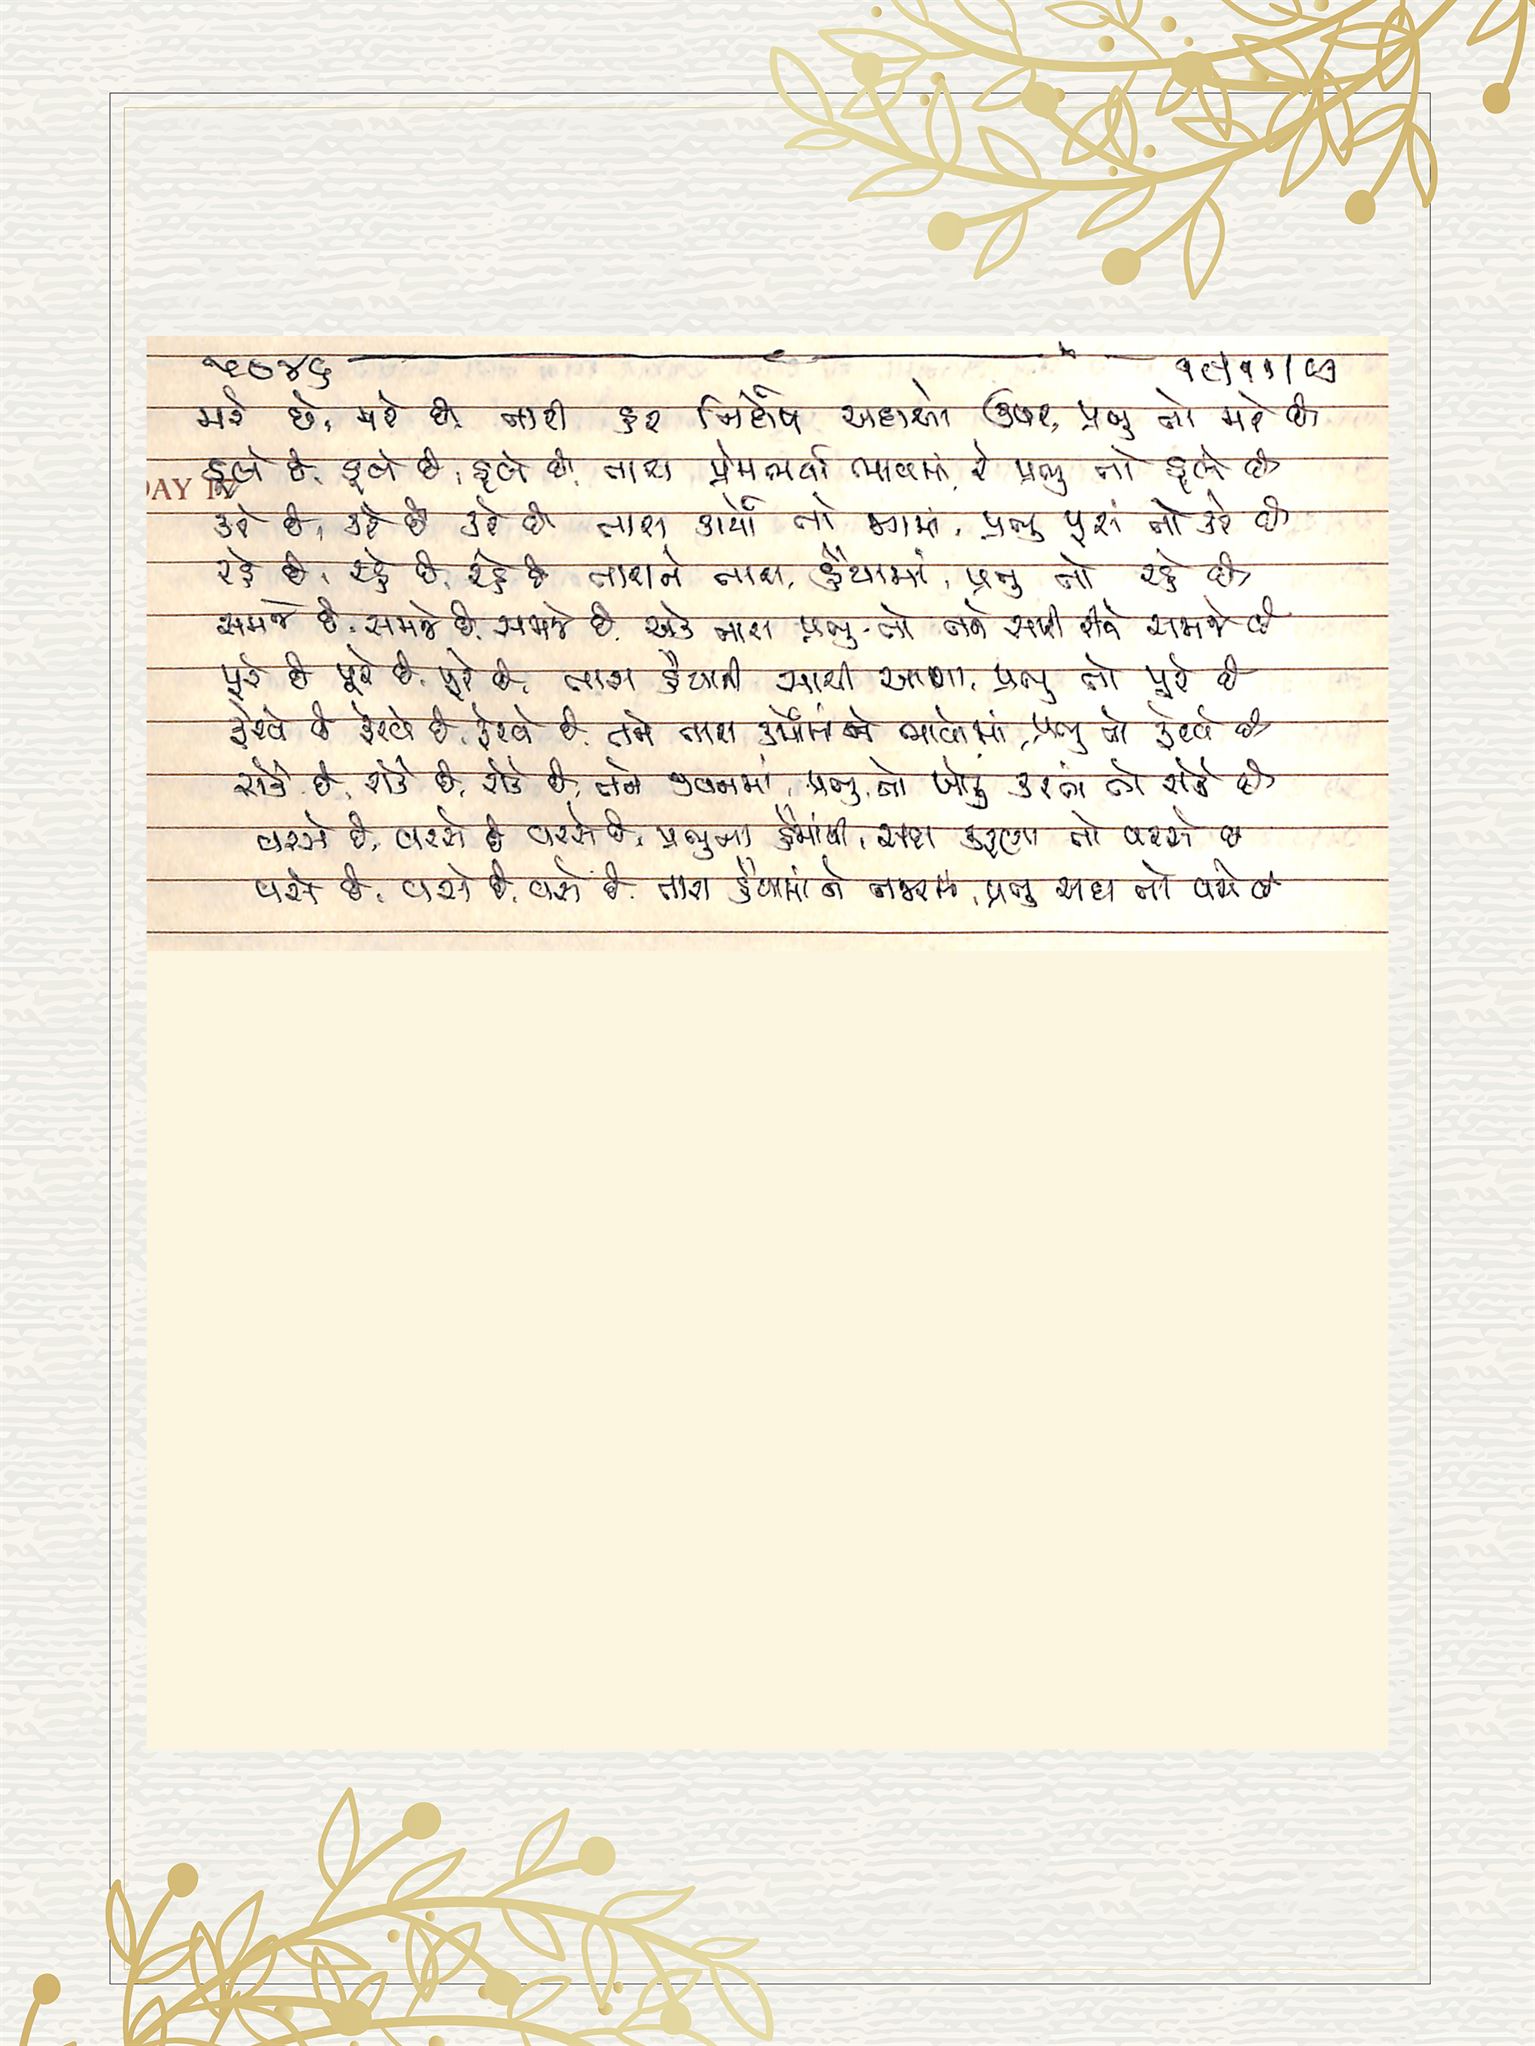 ૫૭૪૬ ૧૯/૧૧/૯૫
મરે છે, મરે છે, તારી હર નિર્દોષ અદાઓ ઉપર, પ્રભુ તો મરે છે
ઝૂલે છે, ઝૂલે છે, ઝૂલે છે, તારા પ્રેમભર્યા ભાવમાં, રે પ્રભુ તો ઝૂલે છે
કરે છે, કરે છે, કરે છે, તારા કાર્યો તો જગમાં, પ્રભુ પૂરાં તો કરે છે
રહે છે, રહે છે, રહે છે, તારાને તારા, હૈયામાં, પ્રભુ તો રહે છે
સમજે છે, સમજે છે, સમજે છે, એક તારા પ્રભુ તો તને સાચી રીતે સમજે છે
પૂરે છે, પૂરે છે, પૂરે છે, તારા હૈયાની સાચી આશા, પ્રભુ તો પૂરે છે
ફેરવે છે, ફેરવે છે, ફેરવે છે, તને તારા કર્મોમાં ને ભાવોમાં, પ્રભુ તો ફેરવે છે
રોકે છે, રોકે છે, રોકે છે, તને જીવનમાં, પ્રભુ તો ખોટું કરતાં તો રોકે છે
વરસે છે, વરસે છે, વરસે છે, પ્રભુના હૈયાંથી, સદા કરુણા તો વરસે છે
વસે છે, વસે છે, વસે છે, તારા હૈયામાં ને નજરમાં, પ્રભુ સદા તો વસે છે